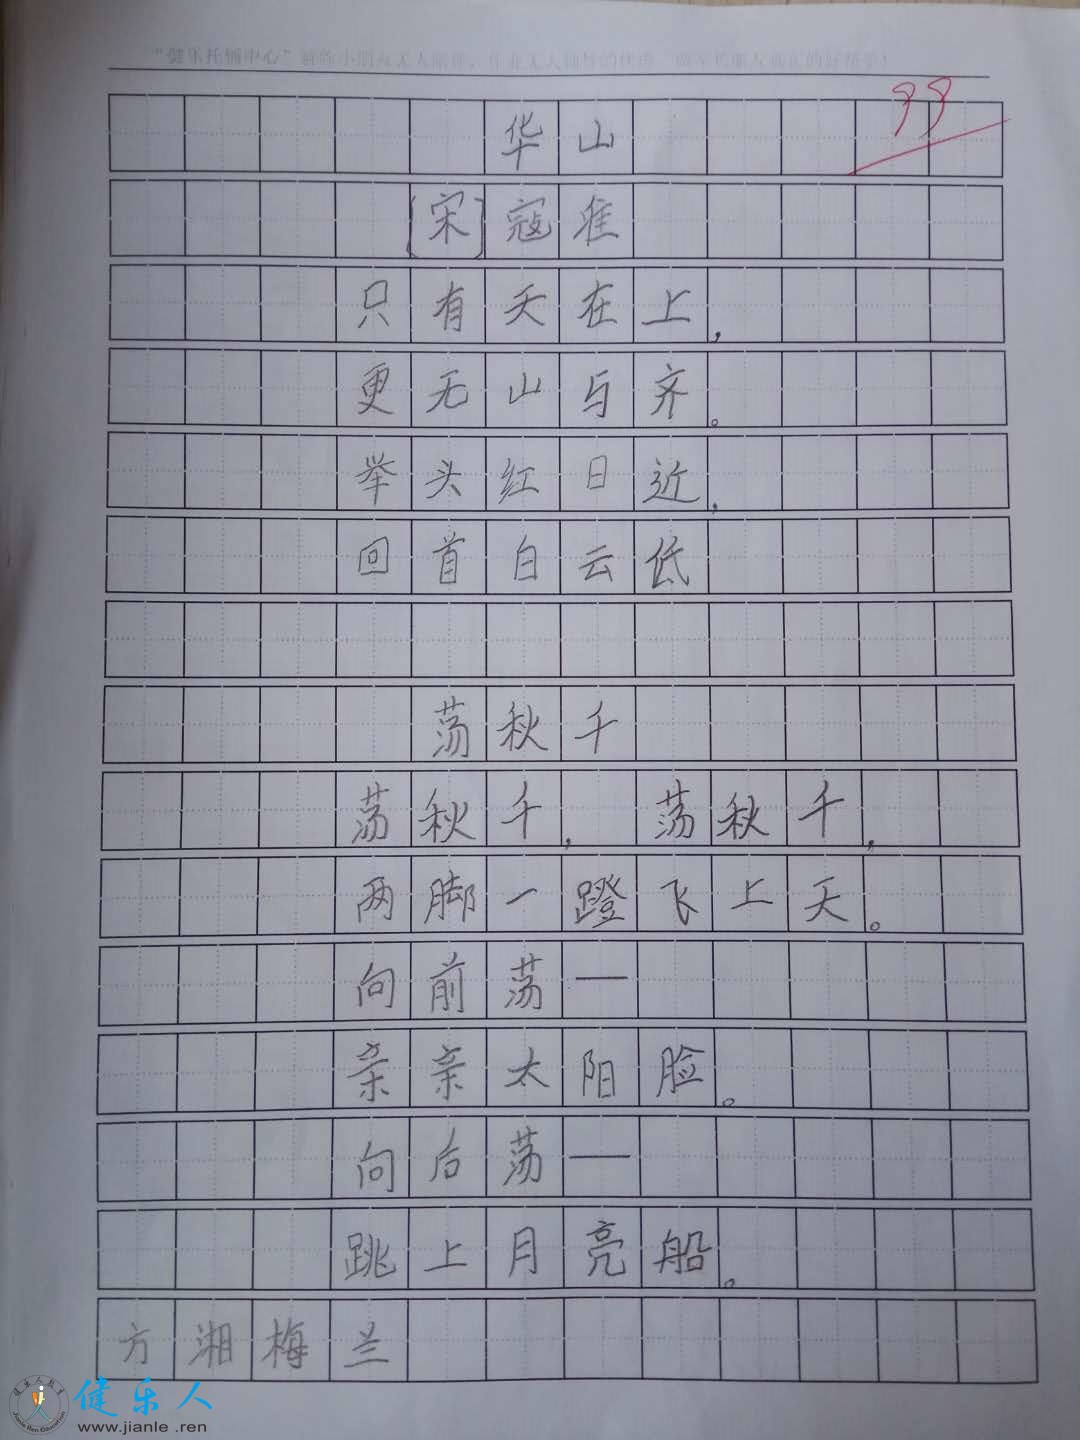 99
华山
[宋]寇准
只有天在上，
更无山与齐。
举头红日近，
回首白云低
荡秋千
荡秋千，荡秋千，
两脚一蹬飞上天。
向前荡—
亲亲太阳脸。
向后荡—
跳上月亮船。
方湘梅兰
健乐人
www.jianle.ren